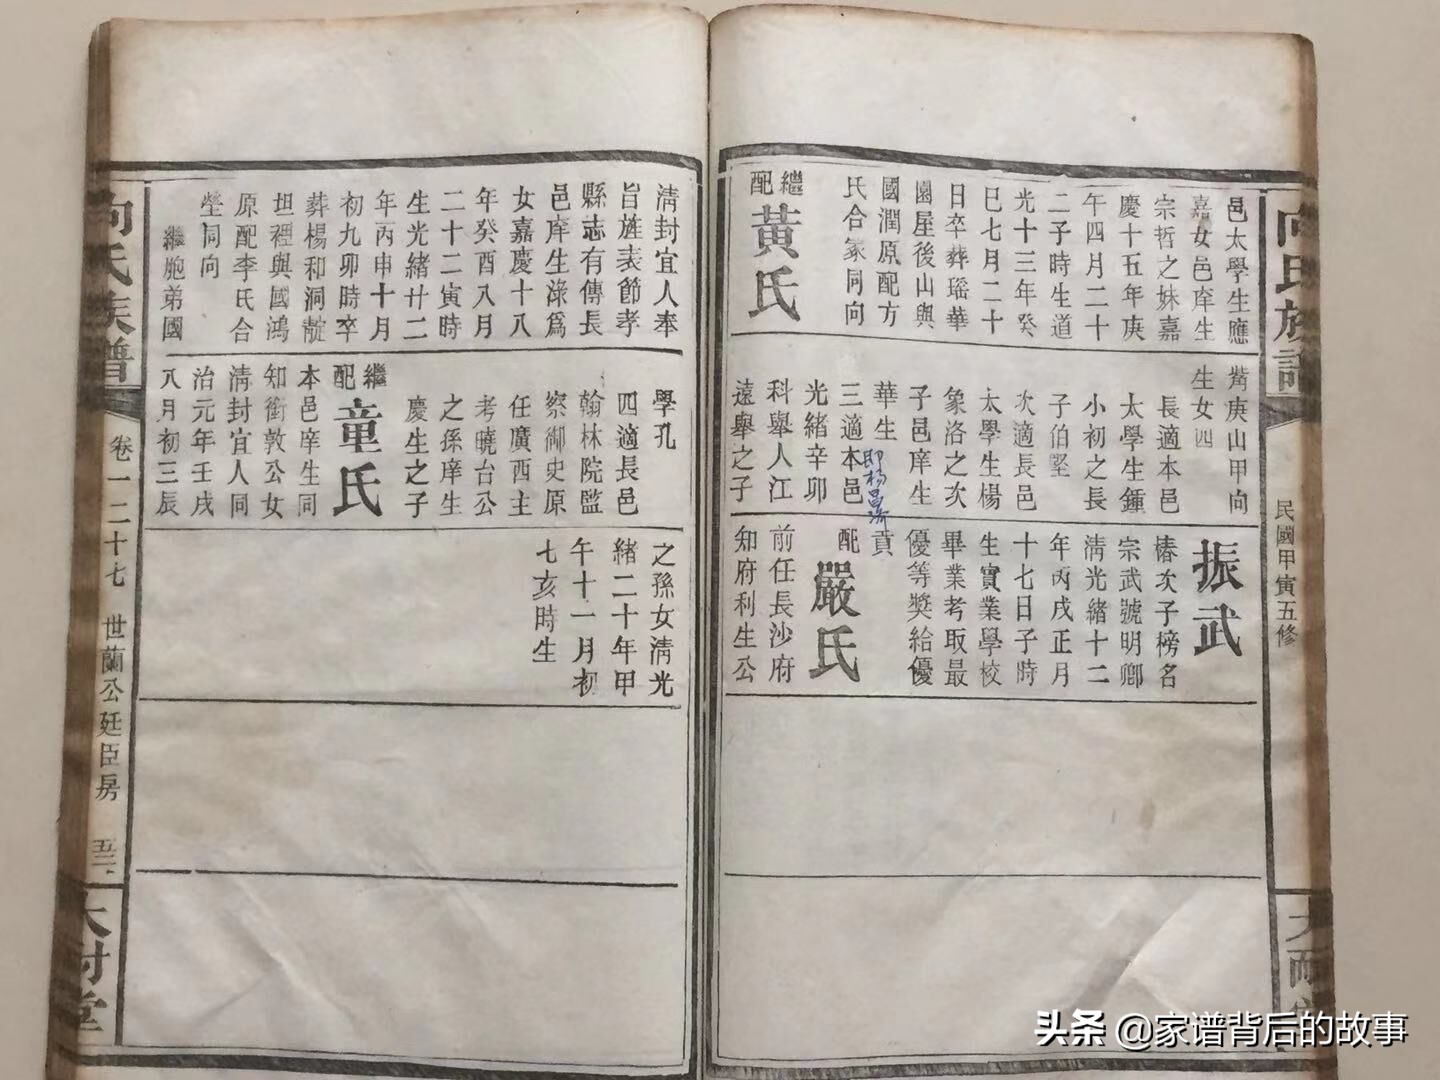 向氏族譜
民國甲寅五修
邑太學生應
嘉女邑庠生
宗哲之妹嘉
慶十五年庚
午四月二十
二子時生道
光十三年癸
巳七月二十
日卒葬瑶華
園屋後山與
國潤原配方
氏合冢同向
繼配
黃氏
觜庚山甲向
生女四
長適本邑
太學生鍾
小初之長
子伯堅
次適長邑
太學生楊
象洛之次
子邑庠生
華生
即楊昌濟
三適本邑
光緒辛卯
科舉人江
遠舉之子
振武
椿次子榜名
宗武號明卿
清光緒十二
年丙戌正月
十七日子時
生實業學校
畢業考取最
優等獎給優
貢
配
嚴氏
前任長沙府
知府利生公
清封宜人奉
旨旌表節孝
縣志有傳長
邑庠生淥爲
女嘉慶十八
年癸酉八月
二十二寅時
生光緒廿二
年丙申十月
初九卯時卒
葬楊和洞靛
坦裡與國鴻
原配李氏合
塋同向
繼胞弟國
學孔
四適長邑
翰林院監
察御史原
任廣西主
考曉台公
之孫庠生
慶生之子
繼配
童氏
本邑庠生同
知銜敦公女
清封宜人同
治元年壬戌
八月初三辰
之孫女清光
緒二十年甲
午十一月初
七亥時生
向氏族譜
卷一二十七 世蘭公廷臣房
五三
大耐堂
头条 @家谱背后的故事